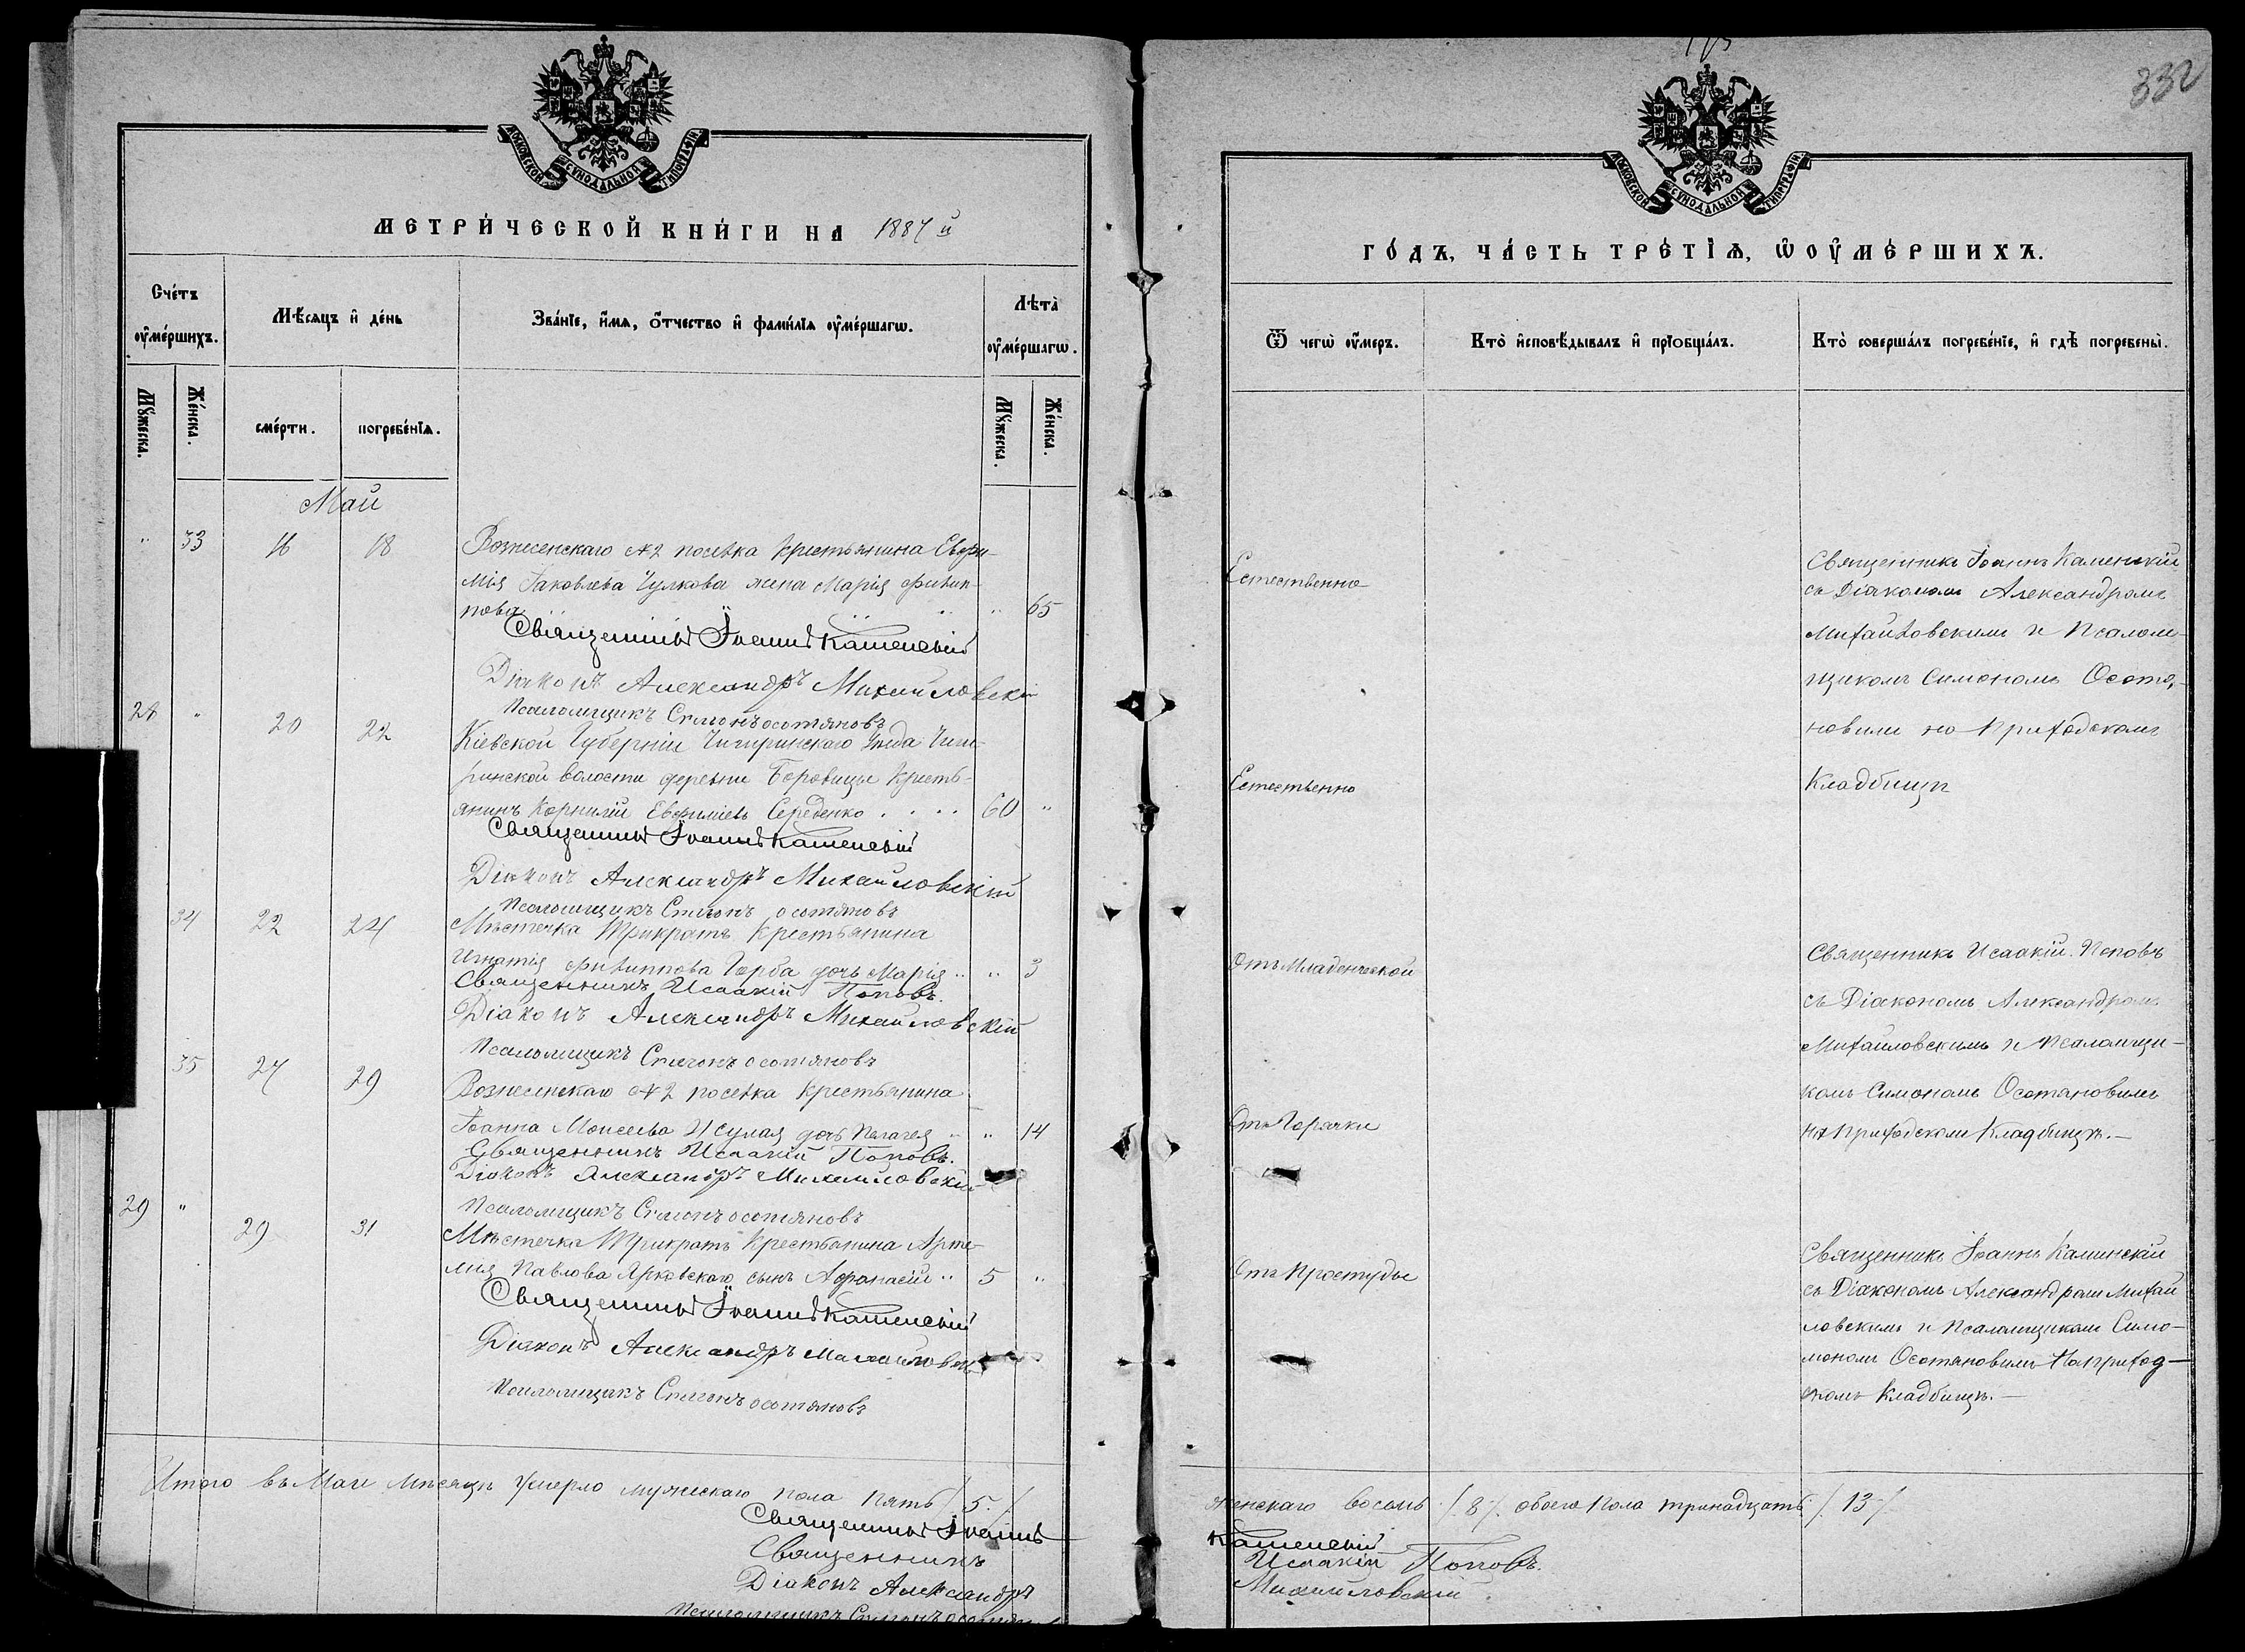 332
МОСКОВСКОЙ СѴНОДАЛЬНОЙ ТИПОГРАФІИ
МЕТРИ́ЧЕСКОЙ КНИ́ГИ НА 1887 й
Сче́тъ ᲂу҆ме́ршихъ.
Мѣ́сяцъ и҆ де́нь
Зва́нїе, и҆́мѧ, ѻ҆́тчество и҆ фами́лїѧ ᲂу҆ме́ршагѡ.
Лѣта̀ ᲂу҆ме́ршагѡ.
Мꙋ́жеска.
Же́нска.
сме́рти.
погребе́нїѧ.
Мꙋ́жеска.
Же́нска.
Май
" 33 16 18 Вознесенскаго №2 поселка крестьянина Евфи-
мія Іаковлева Чулкова жена Марія Филип-
пова " 65
Священникъ Іоаннъ Каменскій
Діаконъ Александръ Михайловскій
Псаломщикъ Симонъ Осотяновъ
28 " 20 22 Кіевской Губерніи Чигиринскаго Уезда Чиги-
ринской волости деревни Боровицы Кресть-
янинъ Корнилій Евфиміевъ Середенко . . . . 60 "
Священникъ Іоаннъ Каменскій
Діаконъ Александръ Михайловскій
Псаломщикъ Симонъ Осотяновъ
34 22 24 Мѣстечка Трикратъ Крестьянина
Игнатія Филиппова Горба дочь Марія " " 3
Священникъ Исаакій Поповъ.
Діаконъ Александръ Михайловскій
Псаломщикъ Симонъ Осотяновъ
35 27 29 Вознесенскаго №2 поселка крестьянина
Іоанна Моисеева Исулая дочь Пелагея " " 14
Священникъ Исаакій Поповъ.
Діаконъ Александръ Михайловскій
Псаломщикъ Симонъ Осотяновъ
29 " 29 31 Мѣстечка Трикратъ Крестьянина Арте-
мія Павлова Ярковскаго сынъ Афанасій " 5 "
Священникъ Іоаннъ Каменскій
Діаконъ Александръ Михайловскій
Псаломщикъ Симонъ Осотяновъ
Итого въ Маѣ мѣсяцѣ Умерло мужескаго пола пять /.5./
Священникъ Іоаннъ
Священникъ
Діаконъ Александръ
Псаломщикъ Симонъ
МОСКОВСКОЙ СѴНОДАЛЬНОЙ ТИПОГРАФІИ
ГО́ДЪ, ЧА́СТЬ ТРЕ́ТЇѦ, Ѡ҆ ОУ҆МЕ́РШИХЪ.
Ѿ чегѡ̀ ᲂу҆́меръ.
Кто̀ и҆сповѣ́дывалъ и҆ прїобща́лъ.
Кто̀ соверша́лъ погребе́нїе, и҆ гдѣ̀ погребены̀.
Естественно
Священникъ Іоаннъ Каменскій
съ Діакономъ Александромъ
Михайловскимъ и Псалом-
щикомъ Симономъ Осотя-
новымъ на Приходскомъ
Кладбищѣ
Естественно
Отъ Младенческой
Священникъ Исаакій Поповъ
съ Діакономъ Александромъ
Михайловскимъ и Псаломщи-
комъ Симономъ Осотяновымъ
на приходскомъ Кладбищѣ.—
Отъ Горячки
Отъ Простуды
Священникъ Іоаннъ Каминскій
съ Діакономъ Александромъ Михай
ловскимъ и Псаломщикомъ Симо-
мономъ Осотяновымъ На приход-
скомъ Кладбищѣ.—
женскаго восемь /.8/. обоего Пола тринадцать /.13./
Каменскій
Исаакій Поповъ.
Михайловскій